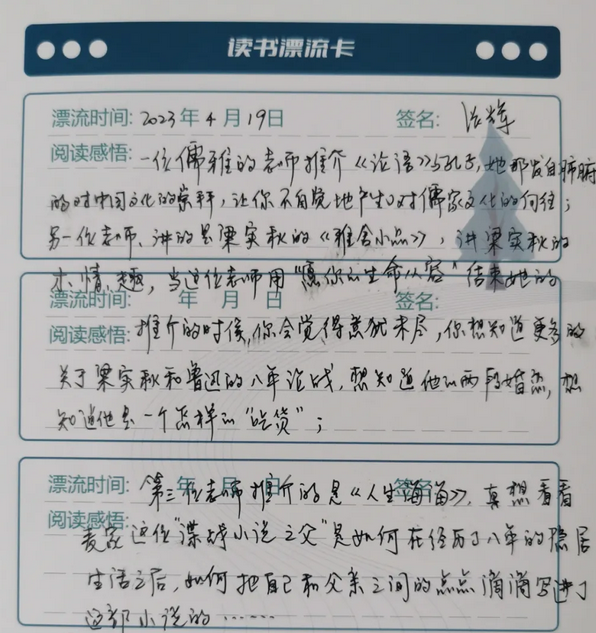 读书漂流卡
漂流时间: 2023年4月19日 签名:
阅读感悟: 一位儒雅的老师推介《论语》与孔子, 她那发自肺腑
的对中国文化的崇拜, 让你不自觉地产生对儒家文化的向往;
另一位老师, 讲的是梁实秋的《雅舍小品》, 讲梁实秋的
才、情、趣, 当这位老师用“愿你的生命从容”结束她的
漂流时间: 年 月 日 签名:
阅读感悟: 推介的时候, 你会觉得意犹未尽, 你想知道更多的
关于梁实秋和鲁迅的八年论战, 想知道他的两段婚恋, 想
知道他是一个怎样的“吃货”;
漂流时间: 年 月 日 签名:
第三位老师推介的是《人生海海》, 真想看看
阅读感悟:
麦家这位“谍战小说之父”是如何在经历了八年的隐居
生活之后, 如何把自己和父亲之间的点点滴滴写进了
这部小说的……